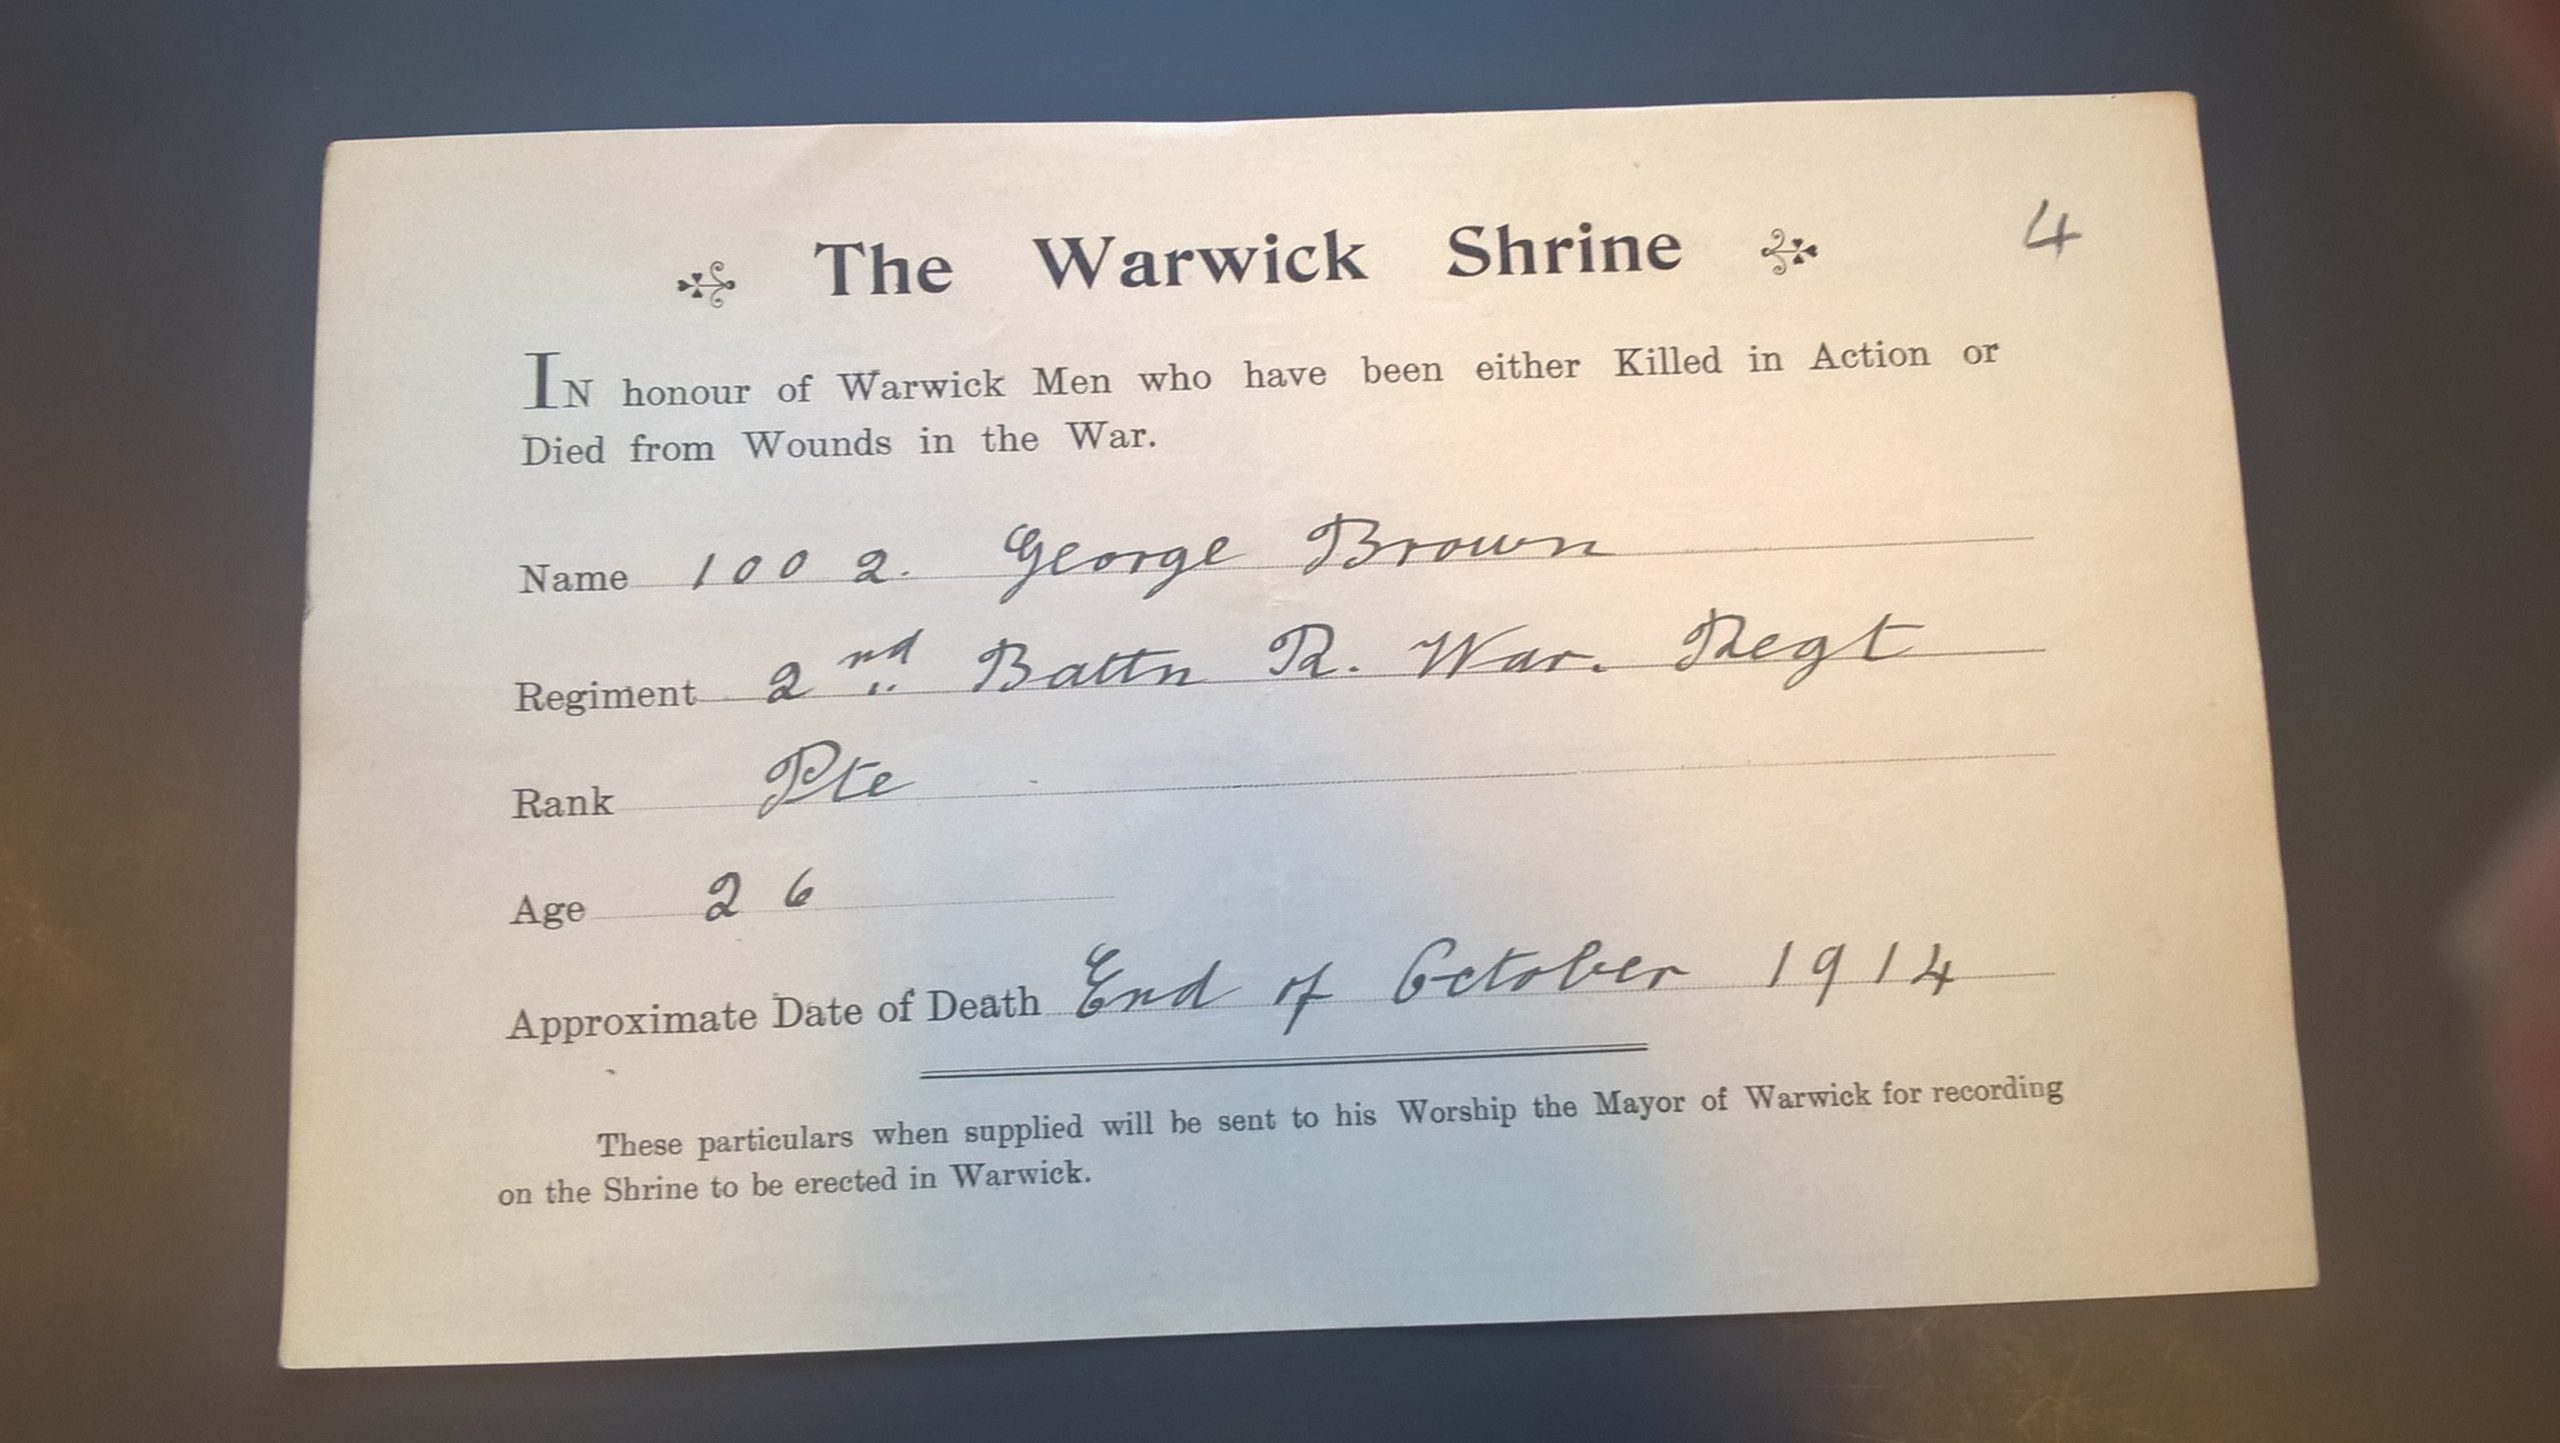 The Warwick Shrine 4
IN honour of Warwick Men who have been either Killed in Action or
Died from Wounds in the War.
Name 1002. George Brown
Regiment 2nd Battn R. War. Regt
Rank Pte
Age 26
Approximate Date of Death End of October 1914
These particulars when supplied will be sent to his Worship the Mayor of Warwick for recording
on the Shrine to be erected in Warwick.